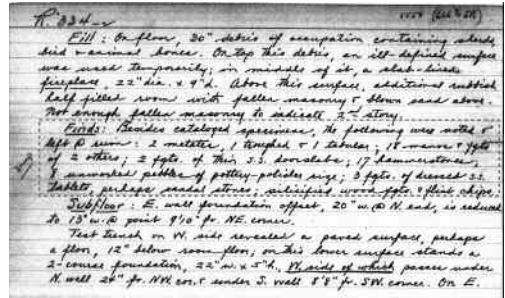 R. 334-2
Fill: On floor, 20" debris of occupation containing sherds,
bird & animal bones. On top this debris, an ill-defined surface
was used temporarily; in middle of it, a slab-lined
fireplace, 22" dia. x 9" d. Above this surface, additional rubbish
half filled room with fallen masonry & blown sand above.
Not enough fallen masonry to indicate 2nd story.
Finds: Besides cataloged specimens, the following were noted &
left @ ruin: 2 metates, 1 troughed & 1 tabular; 18 manos & fgts
of 2 others; 2 fgts. of thin s.s. doorslabs; 17 hammerstones;
8 unworked pebbles of pottery-polisher size; 3 fgts. of dressed s.s.
tablets, perhaps sandal stones; silicified wood fgts. & flint chips.
Subfloor: E. wall foundation offset, 20" w. @ N. end, is reduced
to 13" w. @ point 9'10" fr. NE. corner.
Test trench on W. side revealed a paved surface, perhaps
a floor, 12" below room floor; on this lower surface stands a
2-course foundation, 22" w. x 5" h., W. side of which passes under
N. wall 24" fr. NW. cor. & under S. wall 8'8" fr. SW. corner. On E.